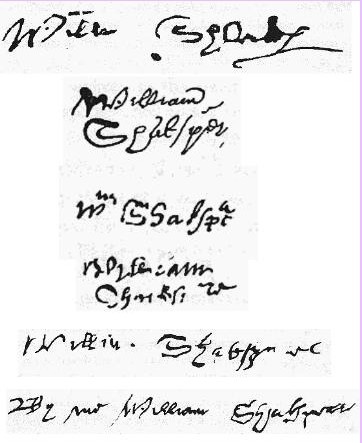 Willm Shakp
William
Shakspēr
Wm Shakspe
William
Shakspere
Willm Shakspere
By me William Shakspeare